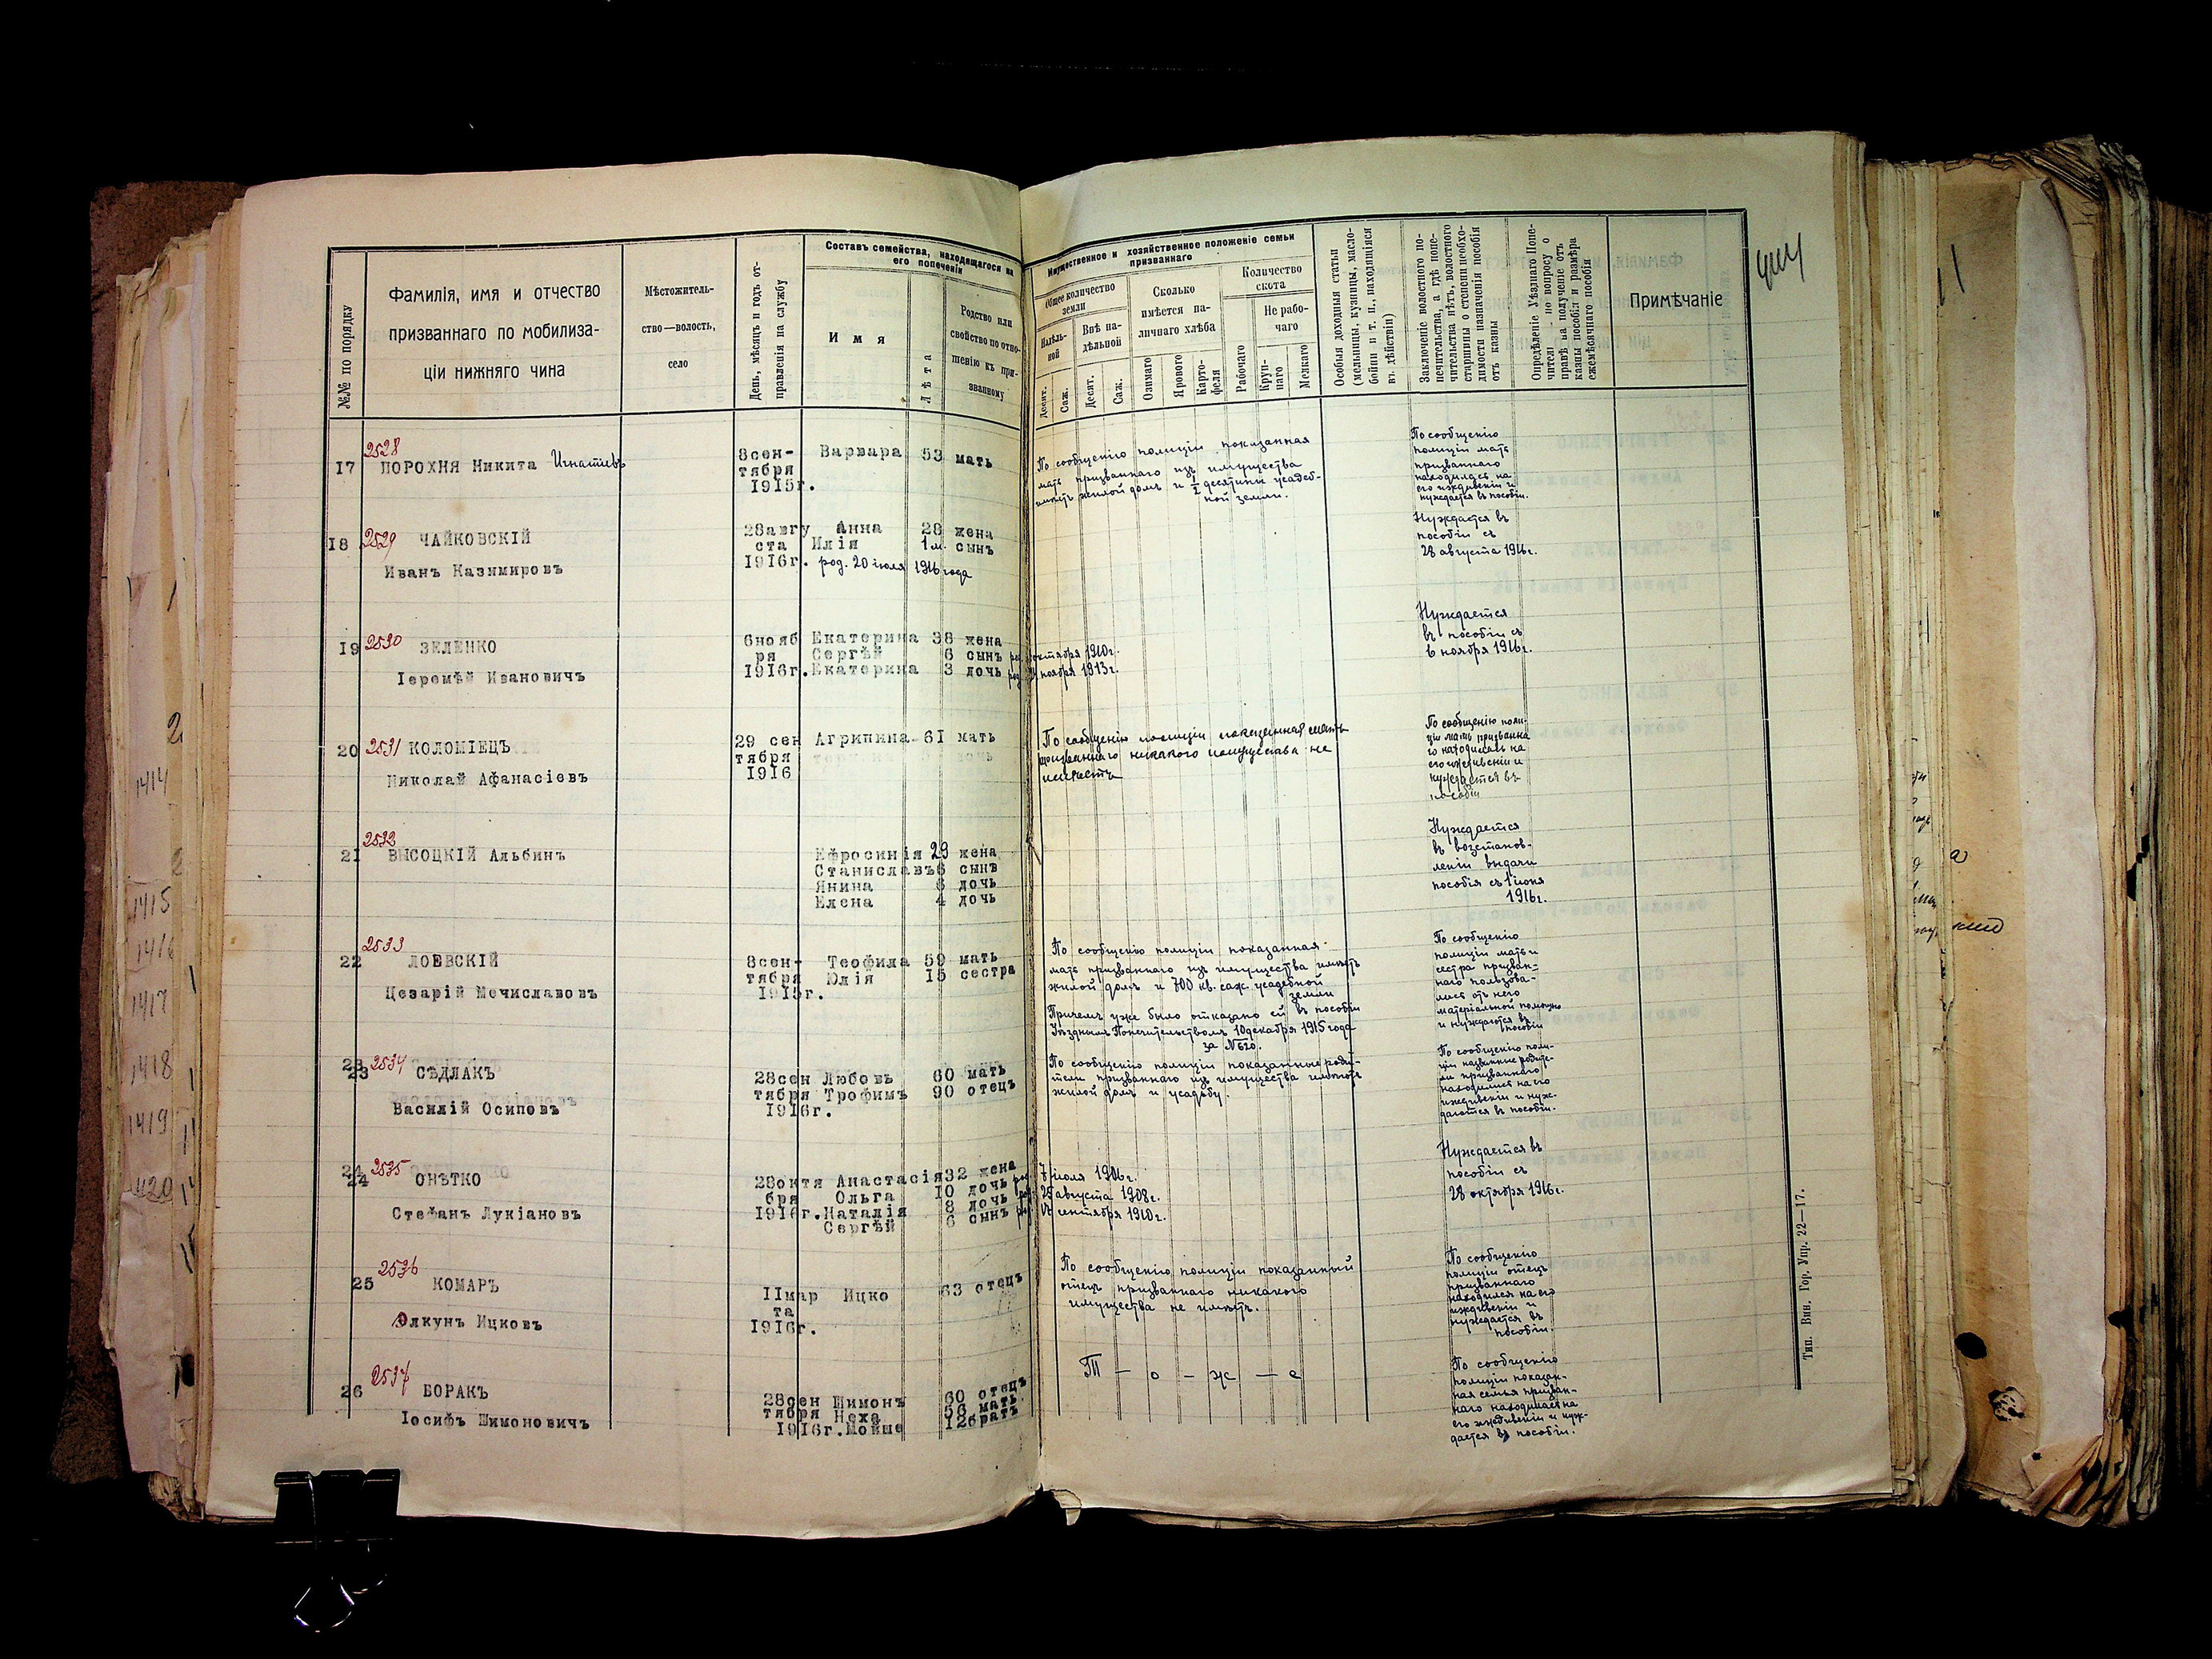 №№ по порядку
Фамилія, имя и отчество
призваннаго по мобилиза-
ціи нижняго чина
Мѣстожитель-
ство—волость,
село
День, мѣсяцъ и годъ от-
правленія на службу
Составъ семейства, находящагося на
его попеченіи
Имя
Лѣта
Родство или
свойство по отно-
шенію къ при-
званному
Имущественное и хозяйственное положеніе семьи
призваннаго
Общее количество
земли
Надѣль-
ной
Внѣ на-
дѣльной
Десят.
Саж.
Десят.
Саж.
Сколько
имѣется на-
личнаго хлѣба
Озимаго
Ярового
Карто-
феля
Количество
скота
Рабочаго
Не рабо-
чаго
Круп-
наго
Мелкаго
Особыя доходныя статьи
(мельницы, кузницы, масло-
бойни и т. п., находящіяся
въ дѣйствіи)
Заключеніе волостного по-
печительства, а гдѣ попе-
чительства нѣтъ, волостного
старшины о степени необхо-
димости назначенія пособія
отъ казны
Опредѣленіе Уѣзднаго Попе-
чител - по вопросу о
правѣ на полученіе отъ
казны пособія и размѣра
ежемѣсячнаго пособія
Примѣчаніе
2528
17 ПОРОХНЯ Никита Игнатьевъ
8сен-
тября
1915г.
Варвара 53 мать
По сообщенію полиціи показанная
мать призваннаго изъ имущества
имѣетъ жилой домъ и 1/2 десятины усадеб-
ной земли.
По сообщенію
полиціи мать
призваннаго
находилась на
его иждивеніи и
нуждается въ пособіи.
18 2529 ЧАЙКОВСКІЙ
Иванъ Казимировъ
28авгу
ста
1916г.
Анна 28 жена
Илія 1м. сынъ
род. 20 іюля 1916 года
Нуждается въ
пособіи съ
28 августа 1916г.
19 2530 ЗЕЛЕНКО
Іеремѣй Ивановичъ
6нояб
ря
1916г.
Екатерина 38 жена
Сергѣй 6 сынъ октября 1910г.
Екатерина 3 дочь ноября 1913г.
Нуждается
въ пособіи съ
6 ноября 1916г.
20 2531 КОЛОМІЕЦЪ
Николай Афанасіевъ
29 сен
тября
1916
Агрипина 61 мать
По сообщенію полиціи показанная мать
призваннаго никакого имущества не
имѣетъ
По сообщенію поли-
ціи мать призванна
го находилась на
его иждивеніи и
нуждается въ
пособіи
2532
21 ВЫСОЦКІЙ Альбинъ
Ефросинія 29 жена
Станиславъ6 сынъ
Янина 6 дочь
Елена 4 дочь
Нуждается
въ возстанов-
леніи выдачи
пособія съ 1 іюня
1916г.
2533
22 ЛОЕВСКІЙ
Цезарій Мечиславовъ
8сен-
тября
1915г.
Теофила 59 мать
Юлія 15 сестра
По сообщенію полиціи показанная
мать призваннаго изъ имущества имѣетъ
жилой домъ и 700 кв. саж. усадебной
земли
Причемъ уже было отказано ей въ пособіи
Уѣзднымъ Попечительствомъ 10 декабря 1915 года
за № 620.
По сообщенію
полиціи мать и
сестра призван-
наго пользова-
лись отъ него
матеріальной помощью
и нуждаются въ
пособіи
23 2534 СѢДЛАКЪ
Василій Осиповъ
28сен
тября
1916г.
Любовь 60 мать
Трофимъ 90 отецъ
По сообщенію полиціи показанные роди-
тели призваннаго изъ имущества имѣютъ
жилой домъ и усадьбу.
По сообщенію поли-
ціи названные родите-
ли призваннаго
находились на его
иждивеніи и нуж-
даются въ пособіи.
24 2535 ОНѢТКО
Стефанъ Лукіановъ
28октя
бря
1916г.
Анастасія32 жена
Ольга 10 дочь 7 іюля 1906г.
Наталія 8 дочь 25 августа 1908г.
Сергѣй 6 сынъ сентября 1910г.
Нуждается въ
пособіи съ
28 октября 1916г.
2536
25 КОМАРЪ
Элкунъ Ицковъ
11мар
та
1916г.
Ицко 63 отецъ
По сообщенію полиціи показанный
отецъ призваннаго никакого
имущества не имѣетъ.
По сообщенію
полиціи отецъ
призваннаго
находился на его
иждивеніи и
нуждается въ
пособіи.
2537
26 БОРАКЪ
Іосифъ Шимоновичъ
28сен
тября
1916г.
Шимонъ 60 отецъ
Неха 56 мать
Мойше 12братъ
Т — о — ж — е
По сообщенію
полиціи показан-
ная семья призван-
наго находилась на
его иждивеніи и нуж-
дается въ пособіи.
Тип. Вин. Гор. Упр. 22—17.
1414
1415
1416
1417
1418
1419
1420